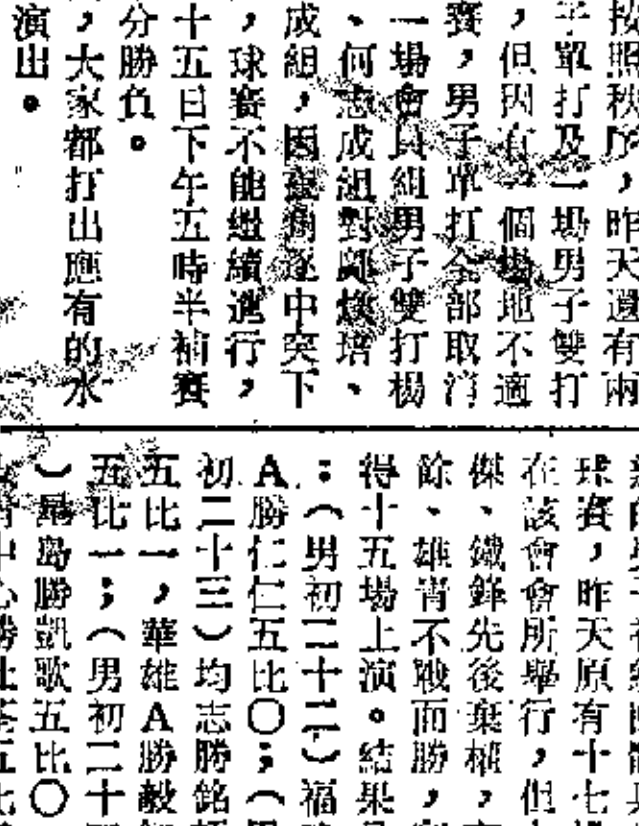 按照秩序，昨天還有兩
子單打及一場男子雙打
，但因有一個場地不適
賽，男子單打全部取消
一場會員組男子雙打楊
、何志成組對鄭煥培、
成組，因在角逐中突下
，球賽不能繼續進行，
十五日下午五時半補賽
分勝負。
，大家都打出應有的水
演出。
球賽，昨天原有十七
在該會會所舉行，但
傑、鐵鋒先後棄權，
餘、雄青不戰而勝，
得十五場上演。結果
：（男初二十二）福
A勝仁仁五比〇；（
初二十三）均志勝銘
五比一，華雄A勝毅
五比一；（男初二十
）島勝凱歌五比〇
中心勝 五比